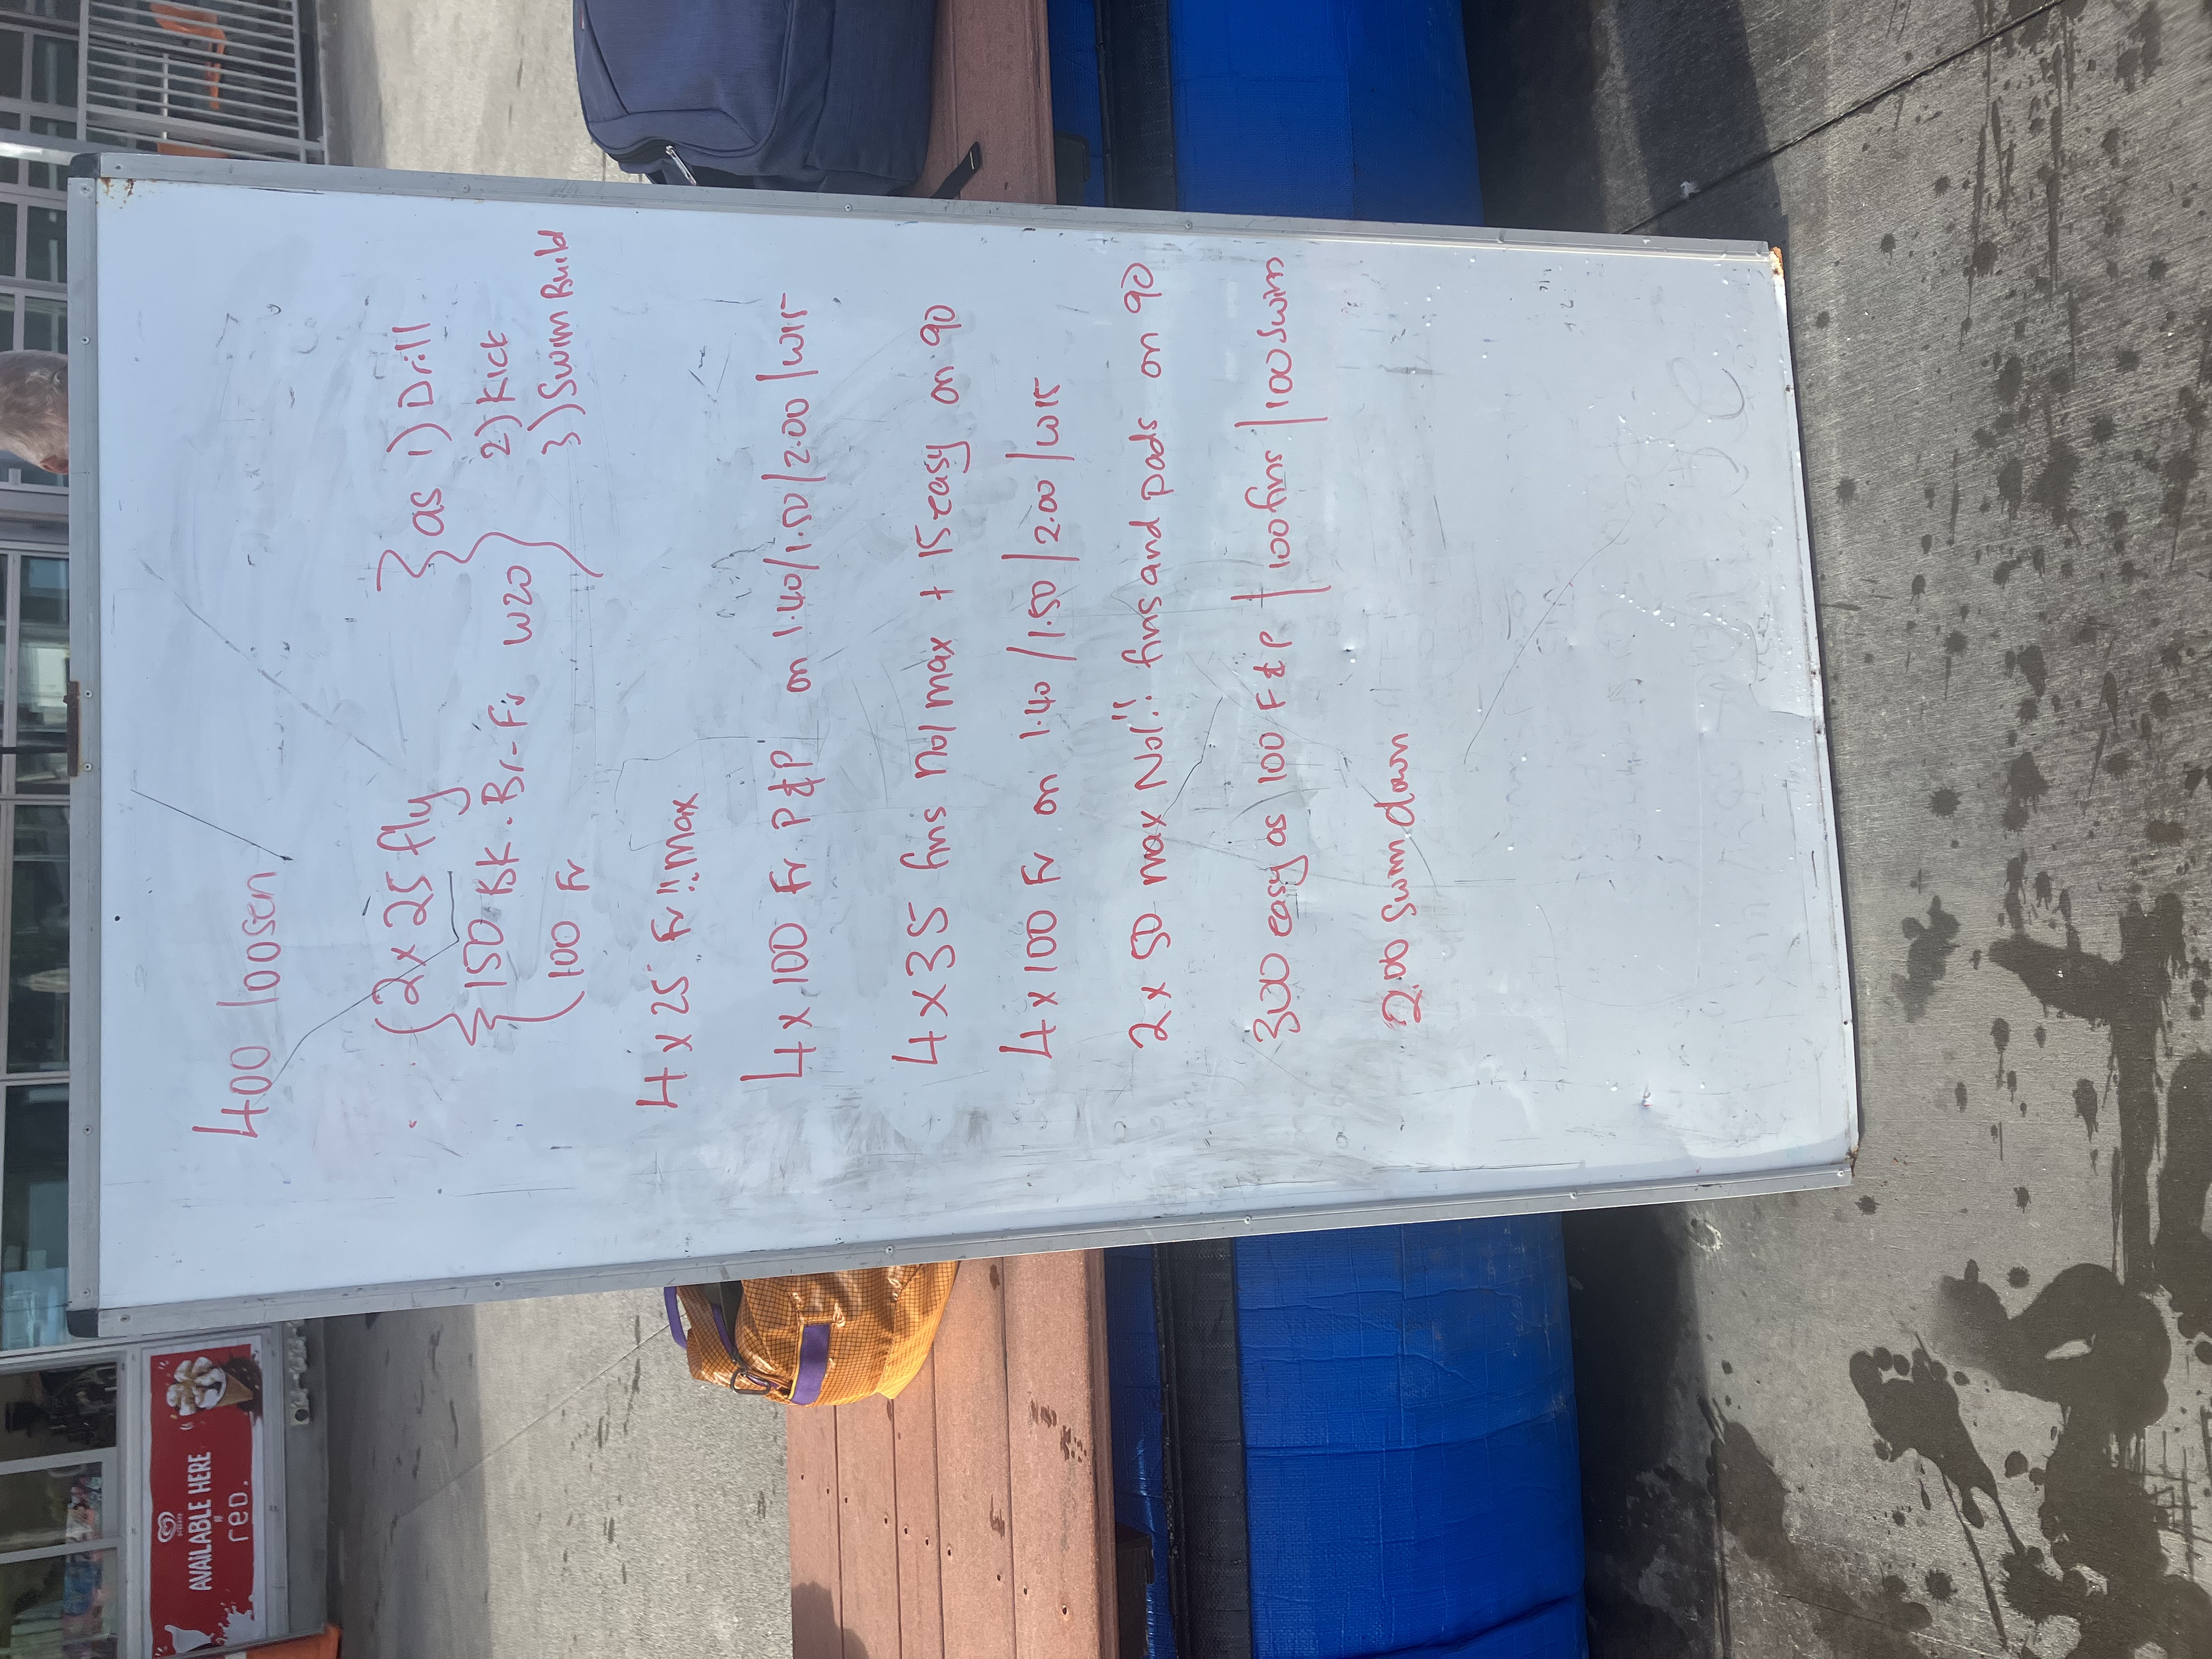 400 loosen
2 x 25 fly } as 1) Drill
3 { 150 BK-Br-Fr W20 2) Kick
100 Fr 3) Swim Build
4 x 25 Fr !! max
4 x 100 Fr P&P on 1.40/1.50/2.00/W15
4 x 35 fins no! max + 15 easy on 90
4 x 100 Fr on 1.40/1.50/2.00/W15
2 x 50 max No!! fins and pads on 90
300 easy as 100 F&P / 100 fins / 100 Swim
200 Swim down
AVAILABLE HERE
red.